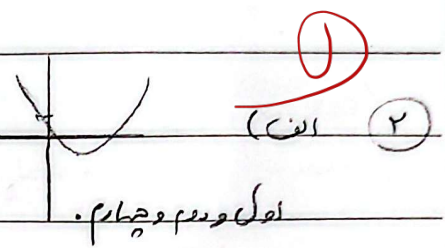 ۱
۲ الف)
اول و دوم و چهارم.